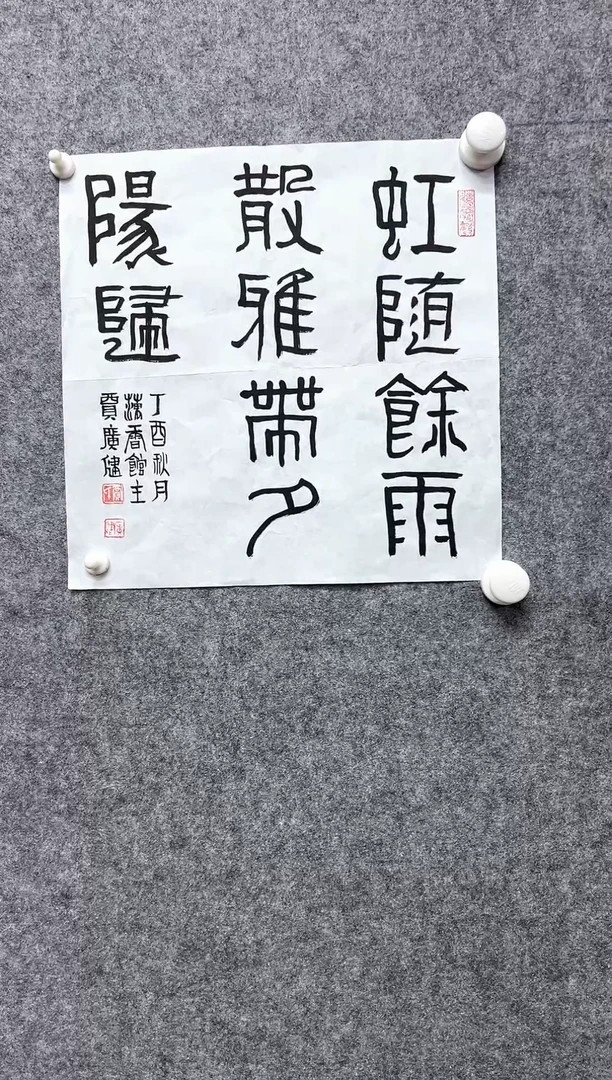 虹随餘雨
散雅帶夕
陽歸
丁酉秋月
蓮香館主
賈廣健